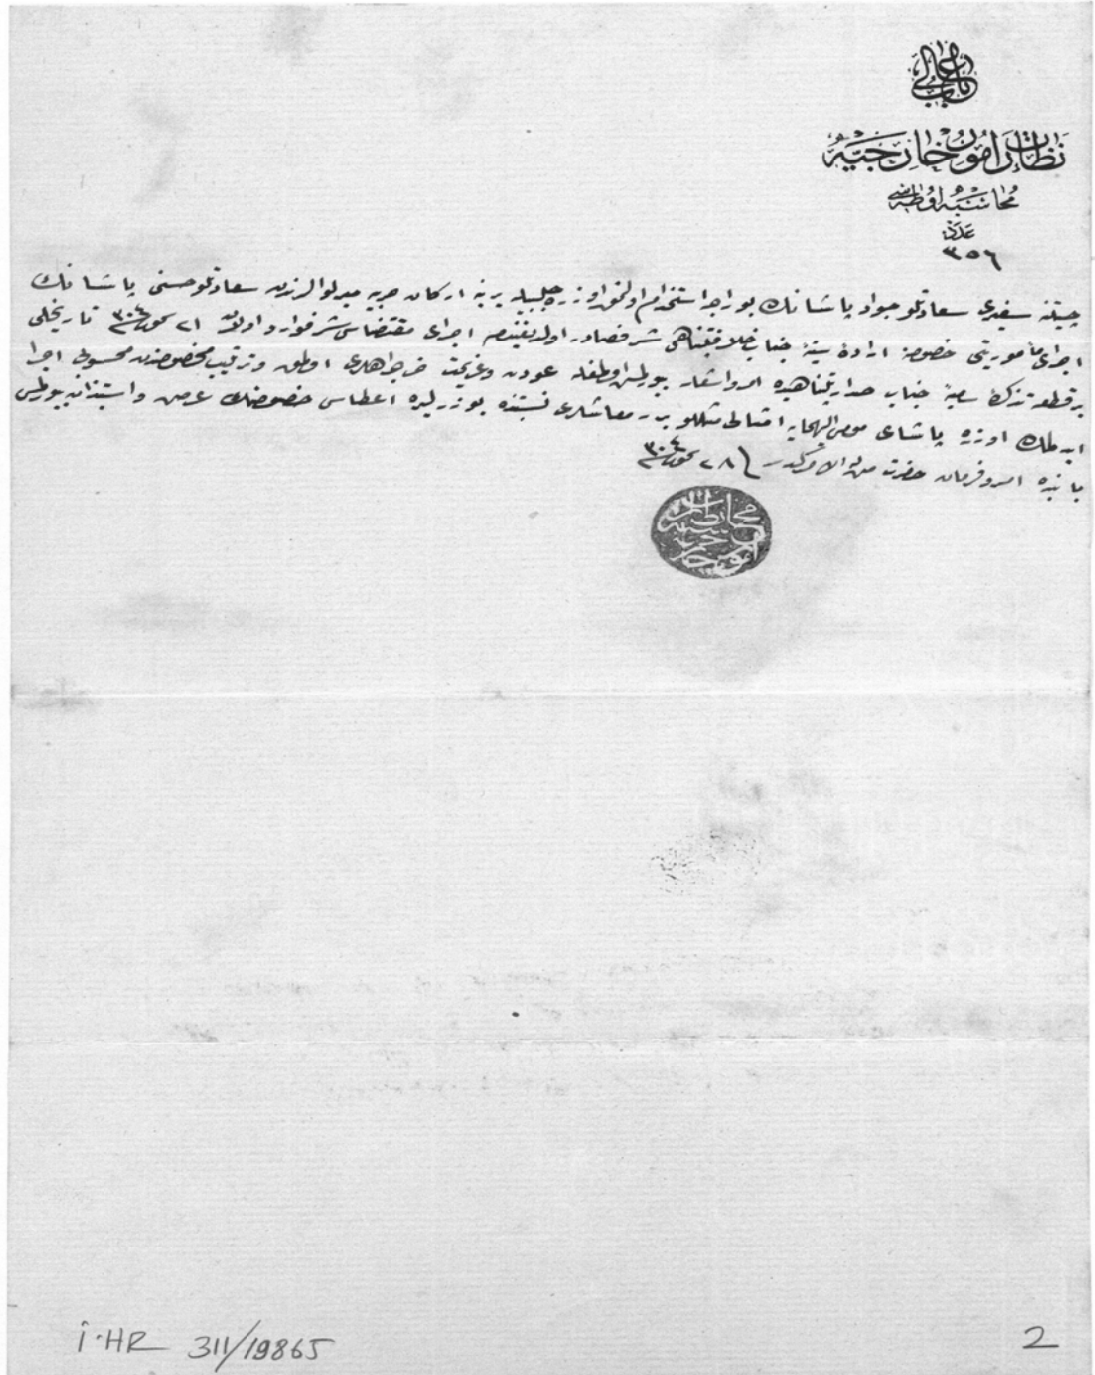 باب عالی
نظارت امور خارجیه
محاسبه اوطه سی
عدد
٣٥٦
چتینه سفیری سعادتلو جواد پاشانك بوراجه استخدام اولنمق اوزره جلبیله یرینه اركان حربیه میرلوالرندن سعادتلو حسنی پاشانك
اجرای مأموریتی خصوصنه اراده سنیه جناب خلافتپناهی شرفصادر اولدیغندن اجرای مقتضاسی شرفوارد اولان ٢١ ٣٠٤ تاریخلی
بر قطعه تذكره سامیه جناب صدارتپناهیده امر و اشعار بیورلمش اولمغله عودت و عزیمت خرجراهلری اولوقت ترتیب مخصوصندن محسوبی اجرا
ایدلمك اوزره پاشای مومی الیهمایه امثالی مثللو برر معاشلری نسبتنده یوزر لیره اعطاسی خصوصنك عرض و استیذان بیورلمسی
بابنده امر و فرمان حضرت من له الامركدر ٢٨ ٣٠٤
محاسبه نظارت امور خارجیه
İ.HR 311/19865
2